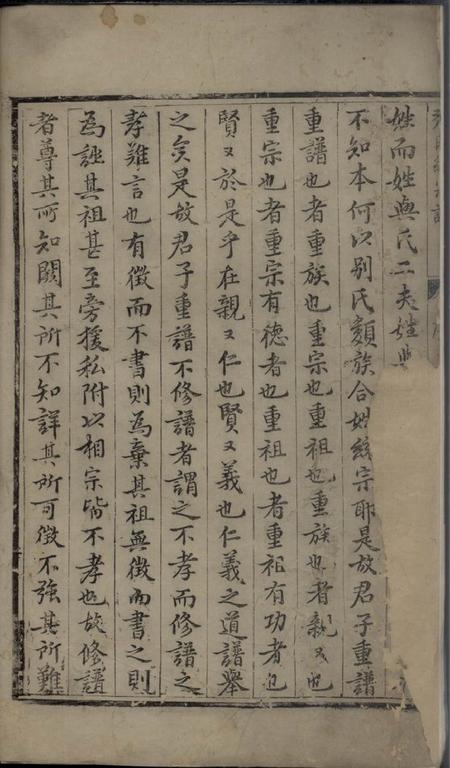 姓而姓與氏二夫姓與
不知本何以别氏類族合姓統宗耶是故君子重譜
重譜也者重族也重宗也重祖也重族也者親又也
重宗也者重宗有德者也重祖也者重祀有功者也
賢又於是乎在親又仁也賢又義也仁義之道譜舉
之矣是故君子重譜不修譜者謂之不孝而修譜之
孝難言也有徵而不書則為棄其祖無徵而書之則
為誣其祖甚至旁援私附以相宗皆不孝也故修譜
者尊其所知闕其所不知詳其所可徵不強其所難